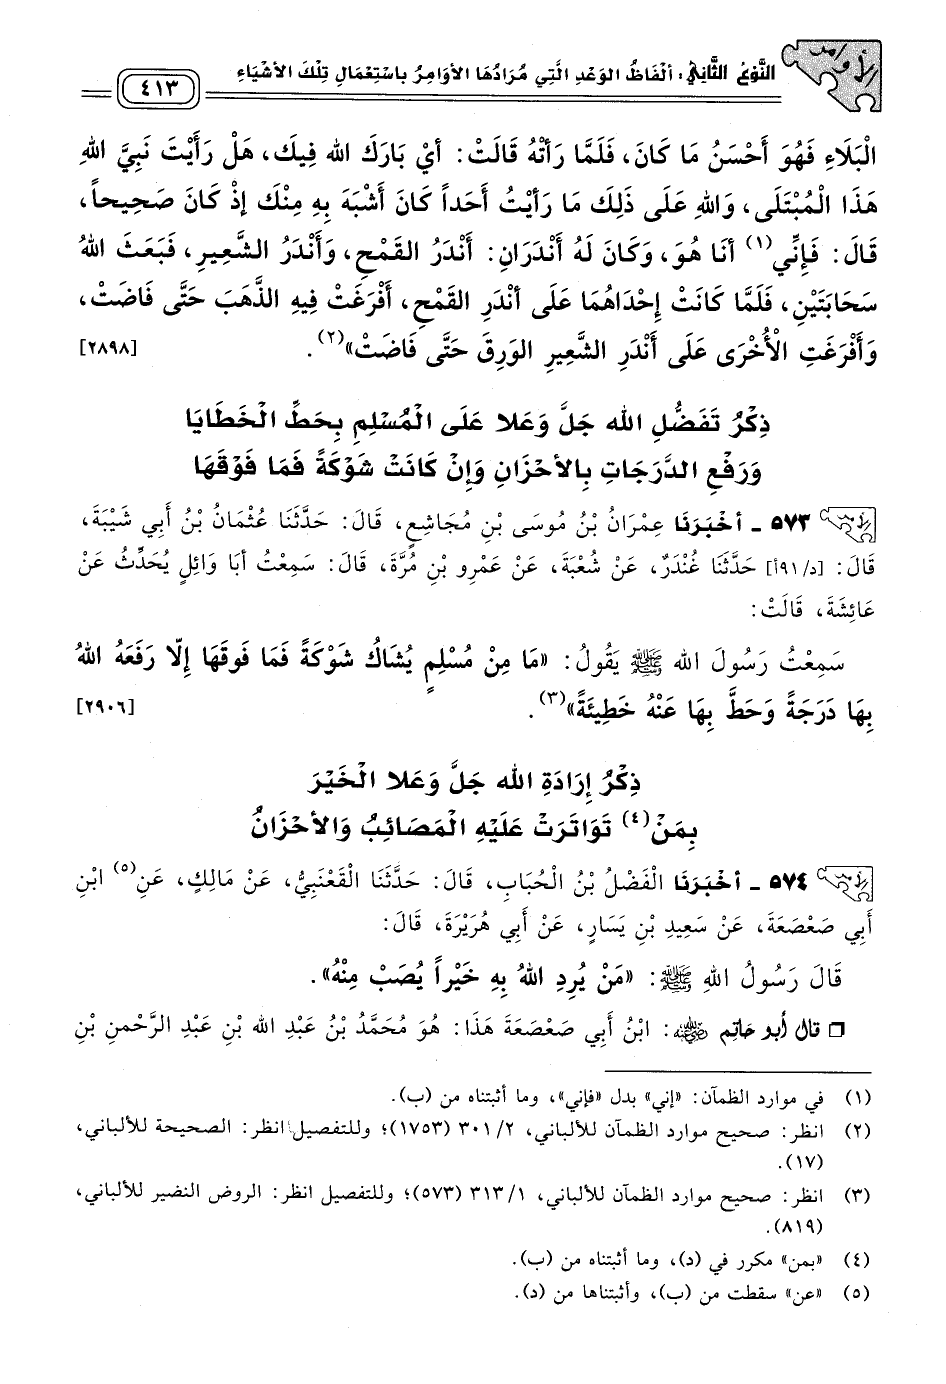 الأوامر
النَّوْعُ الثَّانِيْ: أَلْفَاظُ الوَعْدِ الَّتِي مُرَادُهَا الأَوَامِرُ بِاسْتِعْمَالِ تِلْكَ الأَشْيَاءِ
٤١٣
الْبَلَاءِ فَهُوَ أَحْسَنُ مَا كَانَ، فَلَمَّا رَأَتْهُ قَالَتْ: أَيْ بَارَكَ الله فِيكَ، هَلْ رَأَيْتَ نَبِيَّ اللهِ
هَذَا الْمُبْتَلَى، وَاللهِ عَلَى ذَلِكَ مَا رَأَيْتُ أَحَداً كَانَ أَشْبَهَ بِهِ مِنْكَ إِذْ كَانَ صَحِيحاً،
قَالَ: فَإِنِّي(١) أَنَا هُوَ، وَكَانَ لَهُ أَنْدَرَانِ: أَنْدَرُ القَمْحِ، وَأَنْدَرُ الشَّعِيرِ، فَبَعَثَ اللهُ
سَحَابَتَيْنِ، فَلَمَّا كَانَتْ إِحْدَاهُمَا عَلَى أَنْدَرِ القَمْحِ، أَفْرَغَتْ فِيهِ الذَّهَبَ حَتَّى فَاضَتْ،
وَأَفْرَغَتِ الْأُخْرَى عَلَى أَنْدَرِ الشَّعِيرِ الوَرِقَ حَتَّى فَاضَتْ»(٢). [٢٨٩٨]
ذِكْرُ تَفَضُّلِ الله جَلَّ وَعَلا عَلَى الْمُسْلِمِ بِحَطِّ الْخَطَايَا
وَرَفْعِ الدَّرَجَاتِ بِالأَحْزَانِ وَإِنْ كَانَتْ شَوْكَةً فَمَا فَوْقَهَا
٥٧٣ - أَخْبَرَنَا عِمْرَانُ بْنُ مُوسَى بْنِ مُجَاشِعٍ، قَالَ: حَدَّثَنَا عُثْمَانُ بْنُ أَبِي شَيْبَةَ،
قَالَ: [د/٩١أ] حَدَّثَنَا غُنْدَرٌ، عَنْ شُعْبَةَ، عَنْ عَمْرِو بْنِ مُرَّةَ، قَالَ: سَمِعْتُ أَبَا وَائِلٍ يُحَدِّثُ عَنْ
عَائِشَةَ، قَالَتْ:
سَمِعْتُ رَسُولَ الله ﷺ يَقُولُ: «مَا مِنْ مُسْلِمٍ يُشَاكُ شَوْكَةً فَمَا فَوقَهَا إِلّا رَفَعَهُ اللهُ
بِهَا دَرَجَةً وَحَطَّ بِهَا عَنْهُ خَطِيئَةً»(٣). [٢٩٠٦]
ذِكْرُ إِرَادَةِ الله جَلَّ وَعَلا الْخَيْرَ
بِمَنْ(٤) تَوَاتَرَتْ عَلَيْهِ الْمَصَائِبُ وَالأَحْزَانُ
٥٧٤ - أَخْبَرَنَا الْفَضْلُ بْنُ الْحُبَابِ، قَالَ: حَدَّثَنَا الْقَعْنَبِيُّ، عَنْ مَالِكٍ، عَنِ(٥) ابْنِ
أَبِي صَعْصَعَةَ، عَنْ سَعِيدِ بْنِ يَسَارٍ، عَنْ أَبِي هُرَيْرَةَ، قَالَ:
قَالَ رَسُولُ اللهِ ﷺ: «مَنْ يُرِدِ اللهُ بِهِ خَيْراً يُصَبْ مِنْهُ».
❑ قال أبو حاتم رضي الله عنه: ابْنُ أَبِي صَعْصَعَةَ هَذَا: هُوَ مُحَمَّدُ بْنُ عَبْدِ الله بْنِ عَبْدِ الرَّحْمنِ بْنِ
(١) في موارد الظمآن: «إني» بدل «فإني»، وما أثبتناه من (ب).
(٢) انظر: صحيح موارد الظمآن للألباني، ٣٠١/٢ (١٧٥٣)؛ وللتفصيل انظر: الصحيحة للألباني،
(١٧).
(٣) انظر: صحيح موارد الظمآن للألباني، ٣١٣/١ (٥٧٣)؛ وللتفصيل انظر: الروض النضير للألباني،
(٨١٩).
(٤) «بمن» مكرر في (د)، وما أثبتناه من (ب).
(٥) «عن» سقطت من (ب)، وأثبتناها من (د).